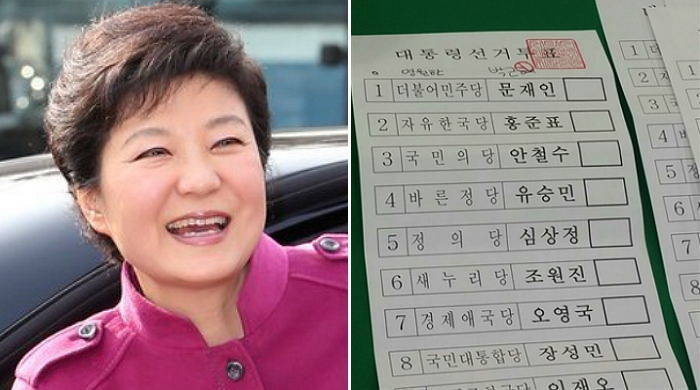 대통령선거투표
1 더불어민주당 문재인
2 자유한국당 홍준표
3 국민의당 안철수
4 바른정당 유승민
5 정의당 심상정
6 새누리당 조원진
7 경제애국당 오영국
8 국민대통합당 장성민